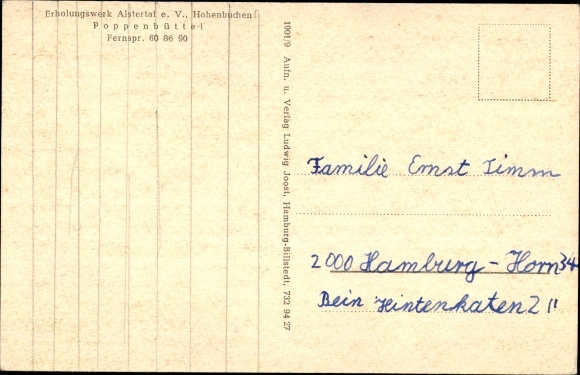 Erholungswerk Alstertal e. V., Hohenbuchen
Poppenbüttel
Fernspr. 60 86 90
1901/9 Aufn. u. Verlag Ludwig Joost, Hamburg-Billstedt, 732 94 27
Familie Ernst Timm
2000 Hamburg-Horn 34
Bein Hintenkaten 2 11